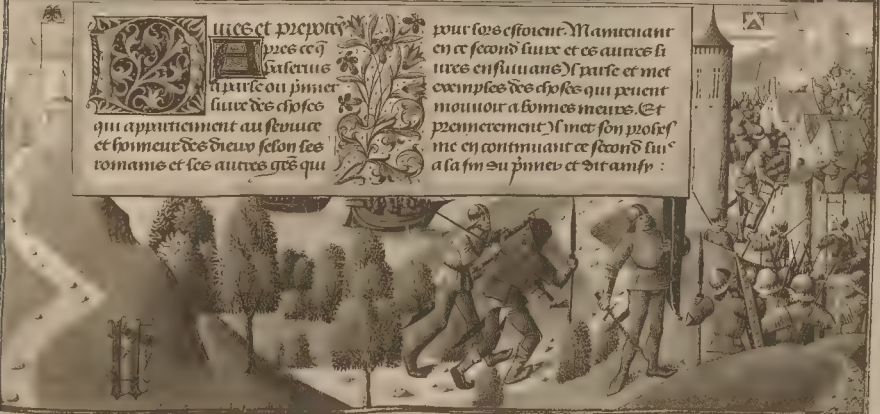 Dues et prepoten
Apres ce q̄
Valerius
a parle ou p̄mier
liure des choses
qui appartiennent au seruice
et honneur des dieux selon les
romains et les autres gēs qui
pour lors estoient. Maintenant
en ce second liure et es autres li
ures ensuiuans Jl parle et met
exemples des choses qui peuent
mouuoir a bonnes meurs. Et
premierement Jl met son prohes
me en continuant ce second liuᵉ
a la fin du p̄mier et dit ainsy :